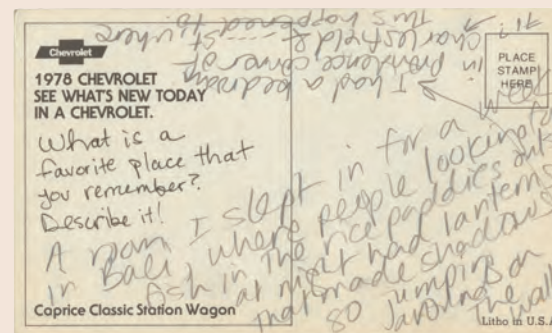 Chevrolet
1978 CHEVROLET
SEE WHAT'S NEW TODAY
IN A CHEVROLET.
What is a
favorite place that
you remember?
Describe it!
A room I slept in for a week
in Bali, where people looking for
fish in the rice paddies out
at night had lanterns
that made shadows
go jumping on
around the wall
Caprice Classic Station Wagon
PLACE
STAMP
HERE
Litho in U.S.A.
I had a bedroom
in Providence corner of
Charlesfield St where
this happened to